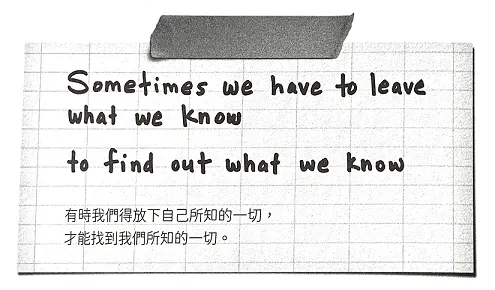 Sometimes we have to leave
what we know
to find out what we know
有時我們得放下自己所知的一切，
才能找到我們所知的一切。